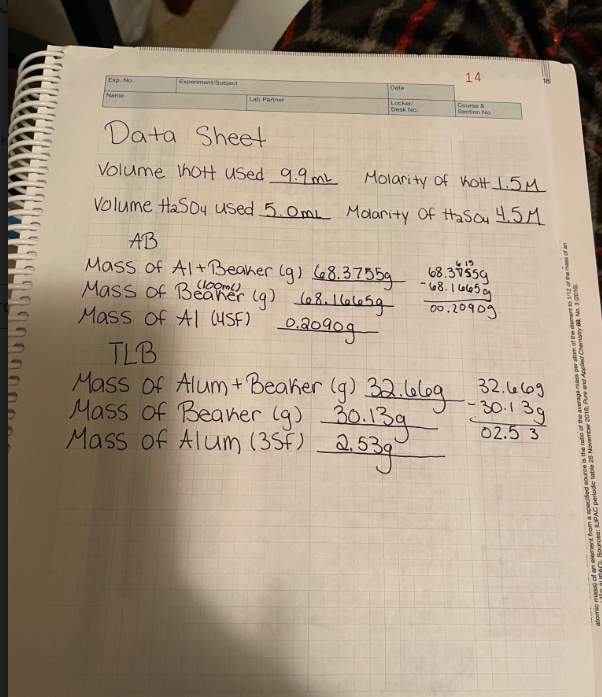 14
Exp. No. Experiment/Subject Date
Name Lab Partner Locker/Desk No. Course & Section No.
Data Sheet
Volume KOH used 9.9mL Molarity of KOH 1.5M
Volume H2SO4 used 5.0mL Molarity Of H2SO4 4.5M
AB
Mass of Al+Beaker (g) 68.3755g
Mass of Beaker (100mL) (g) 68.1665g
Mass of Al (4SF) 0.2090g
6 15
68.3755g
-68.1665g
00.2090g
TLB
Mass of Alum+Beaker (g) 32.66g
Mass of Beaker (g) 30.13g
Mass of Alum (3SF) 2.53g
32.66g
-30.13g
02.53
atomic mass) of an element from a specified source is the ratio of the average mass per atom of the element to 1/12 of the mass of an
Sources: IUPAC periodic table 28 November 2016; Pure and Applied Chemistry 88, No. 3 (2016).